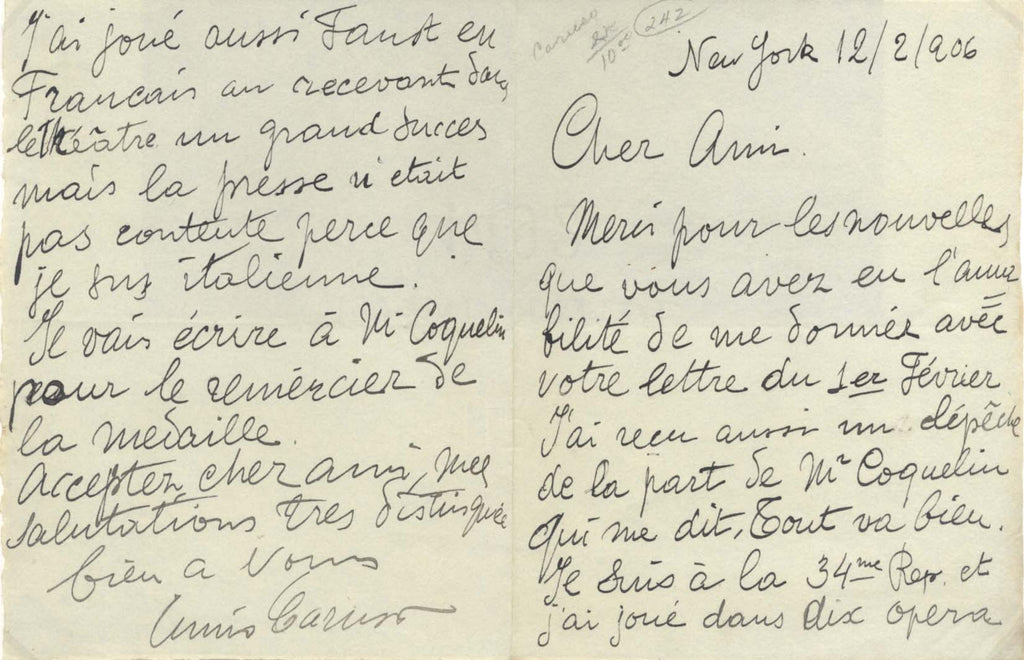 Caruso
242
10
New York 12/2/906
Cher Ami.
Merci pour les nouvelles
que vous avez eu l'ama
bilité de me donner avec
votre lettre du 1er Février
J'ai recu aussi un dépêche
de la part de Mr Coquelin
qui me dit, Tout va bien.
Je suis à la 34me Rep. et
j'ai joué dans dix opera
J'ai joué aussi Faust en
Francais an recevant dans
le théâtre un grand succes
mais la presse n'etait
pas contente perce que
je sus italienne.
Je vais écrire à Mr Coquelin
pour le remèrcier de
la medaille.
Acceptez cher ami, mes
salutations tres distinguée
bien a Vous
Caruso